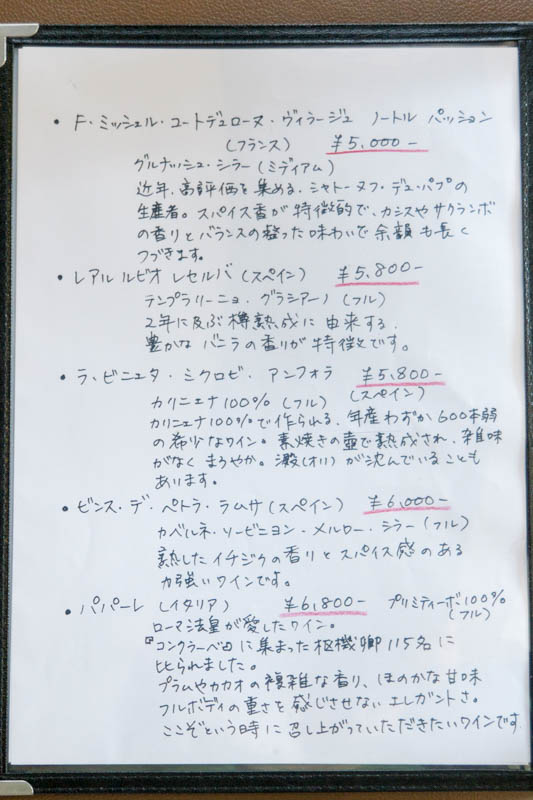 ・F・ミッシェル・コートデュローヌ・ヴィラージュ ノートル パッション
(フランス) ¥5,000-
グルナッシュ・シラー(ミディアム)
近年、高評価を集める、シャトーヌフ・デュ・パプの
生産者。スパイス香が特徴的で、カシスやサクランボ
の香りとバランスの整った味わいで余韻も長く
つづきます。
・レアル ルビオ レセルバ(スペイン) ¥5,800-
テンプラリーニョ、グラシアーノ(フル)
2年に及ぶ樽熟成に由来する、
豊かなバニラの香りが特徴です。
・ラ、ビニュタ・ミクロビ、アンフォラ ¥5,800-
カリニェナ100%(フル) (スペイン)
カリニェナ100%で作られる、年産わずか600本弱
の希少なワイン。素焼きの壺で熟成され、雑味
がなくまろやか。澱(オリ)が沈んでいることも
あります。
・ビンス・デ・ペトラ・ラムサ(スペイン) ¥6,000-
カベルネ・ソービニヨン・メルロー・シラー(フル)
熟したイチジクの香りとスパイス感のある
力強いワインです。
・パパーレ (イタリア) ¥6,800- プリミティーボ100%
(フル)
ローマ法皇が愛したワイン。
『コンクラーベ』に集まった枢機卿115名に
比られました。
プラムやカカオの複雑な香り、ほのかな甘味
フルボディの重さを感じさせないエレガントさ。
ここぞという時に召し上がっていただきたいワインです